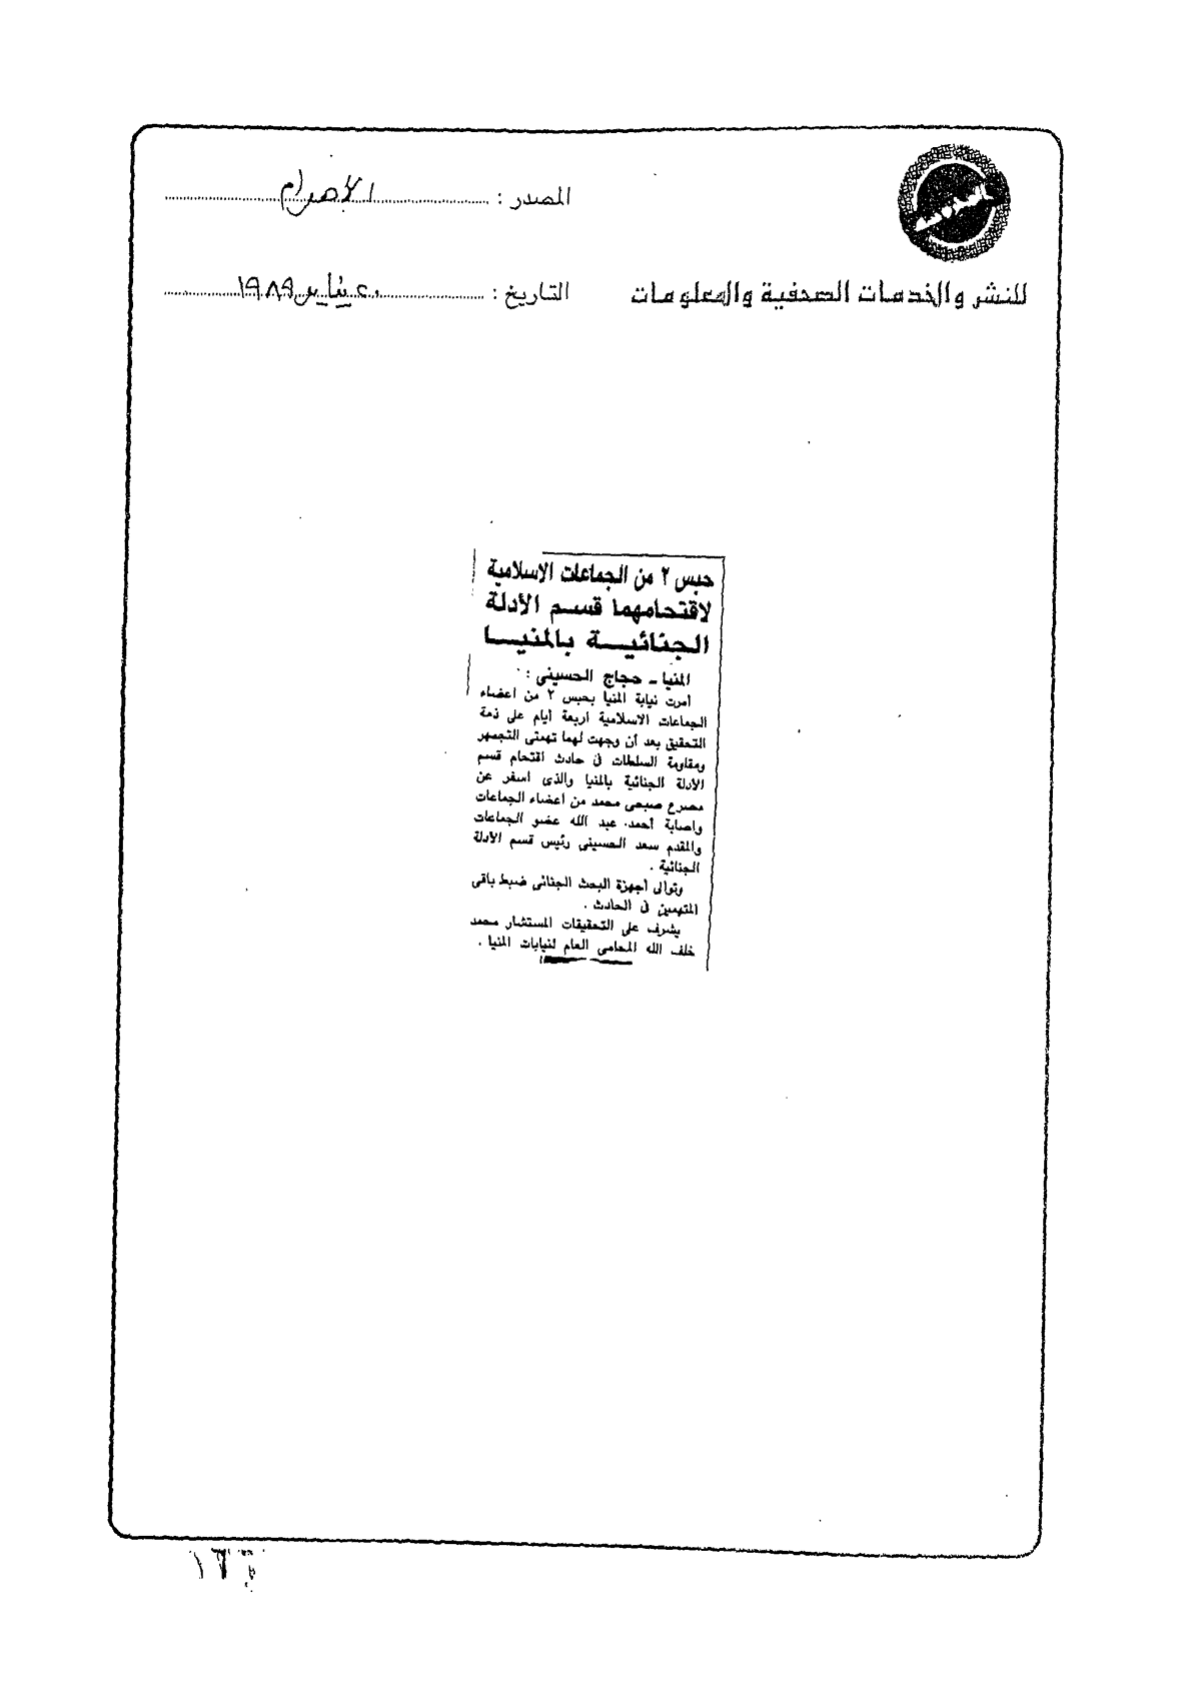 المصدر : الأهرام
للنشر والخدمات الصحفية والمعلومات
التاريخ : ٢٠ يناير ١٩٨٩
حبس ٢ من الجماعات الاسلامية
لاقتحامهما قسم الأدلة
الجنائية بالمنيا
المنيا ـ حجاج الحسينى :
أمرت نيابة المنيا بحبس ٢ من اعضاء
الجماعات الاسلامية اربعة أيام على ذمة
التحقيق بعد أن وجهت لهما تهمتى التجمهر
ومقاومة السلطات فى حادث اقتحام قسم
الأدلة الجنائية بالمنيا والذى اسفر عن
مصرع صبحى محمد من اعضاء الجماعات
واصابة أحمد عبد الله عضو الجماعات
والمقدم سعد الحسينى رئيس قسم الأدلة
الجنائية .
وتوالى أجهزة البحث الجنائى ضبط باقى
المتهمين فى الحادث .
يشرف على التحقيقات المستشار محمد
خلف الله المحامى العام لنيابات المنيا .